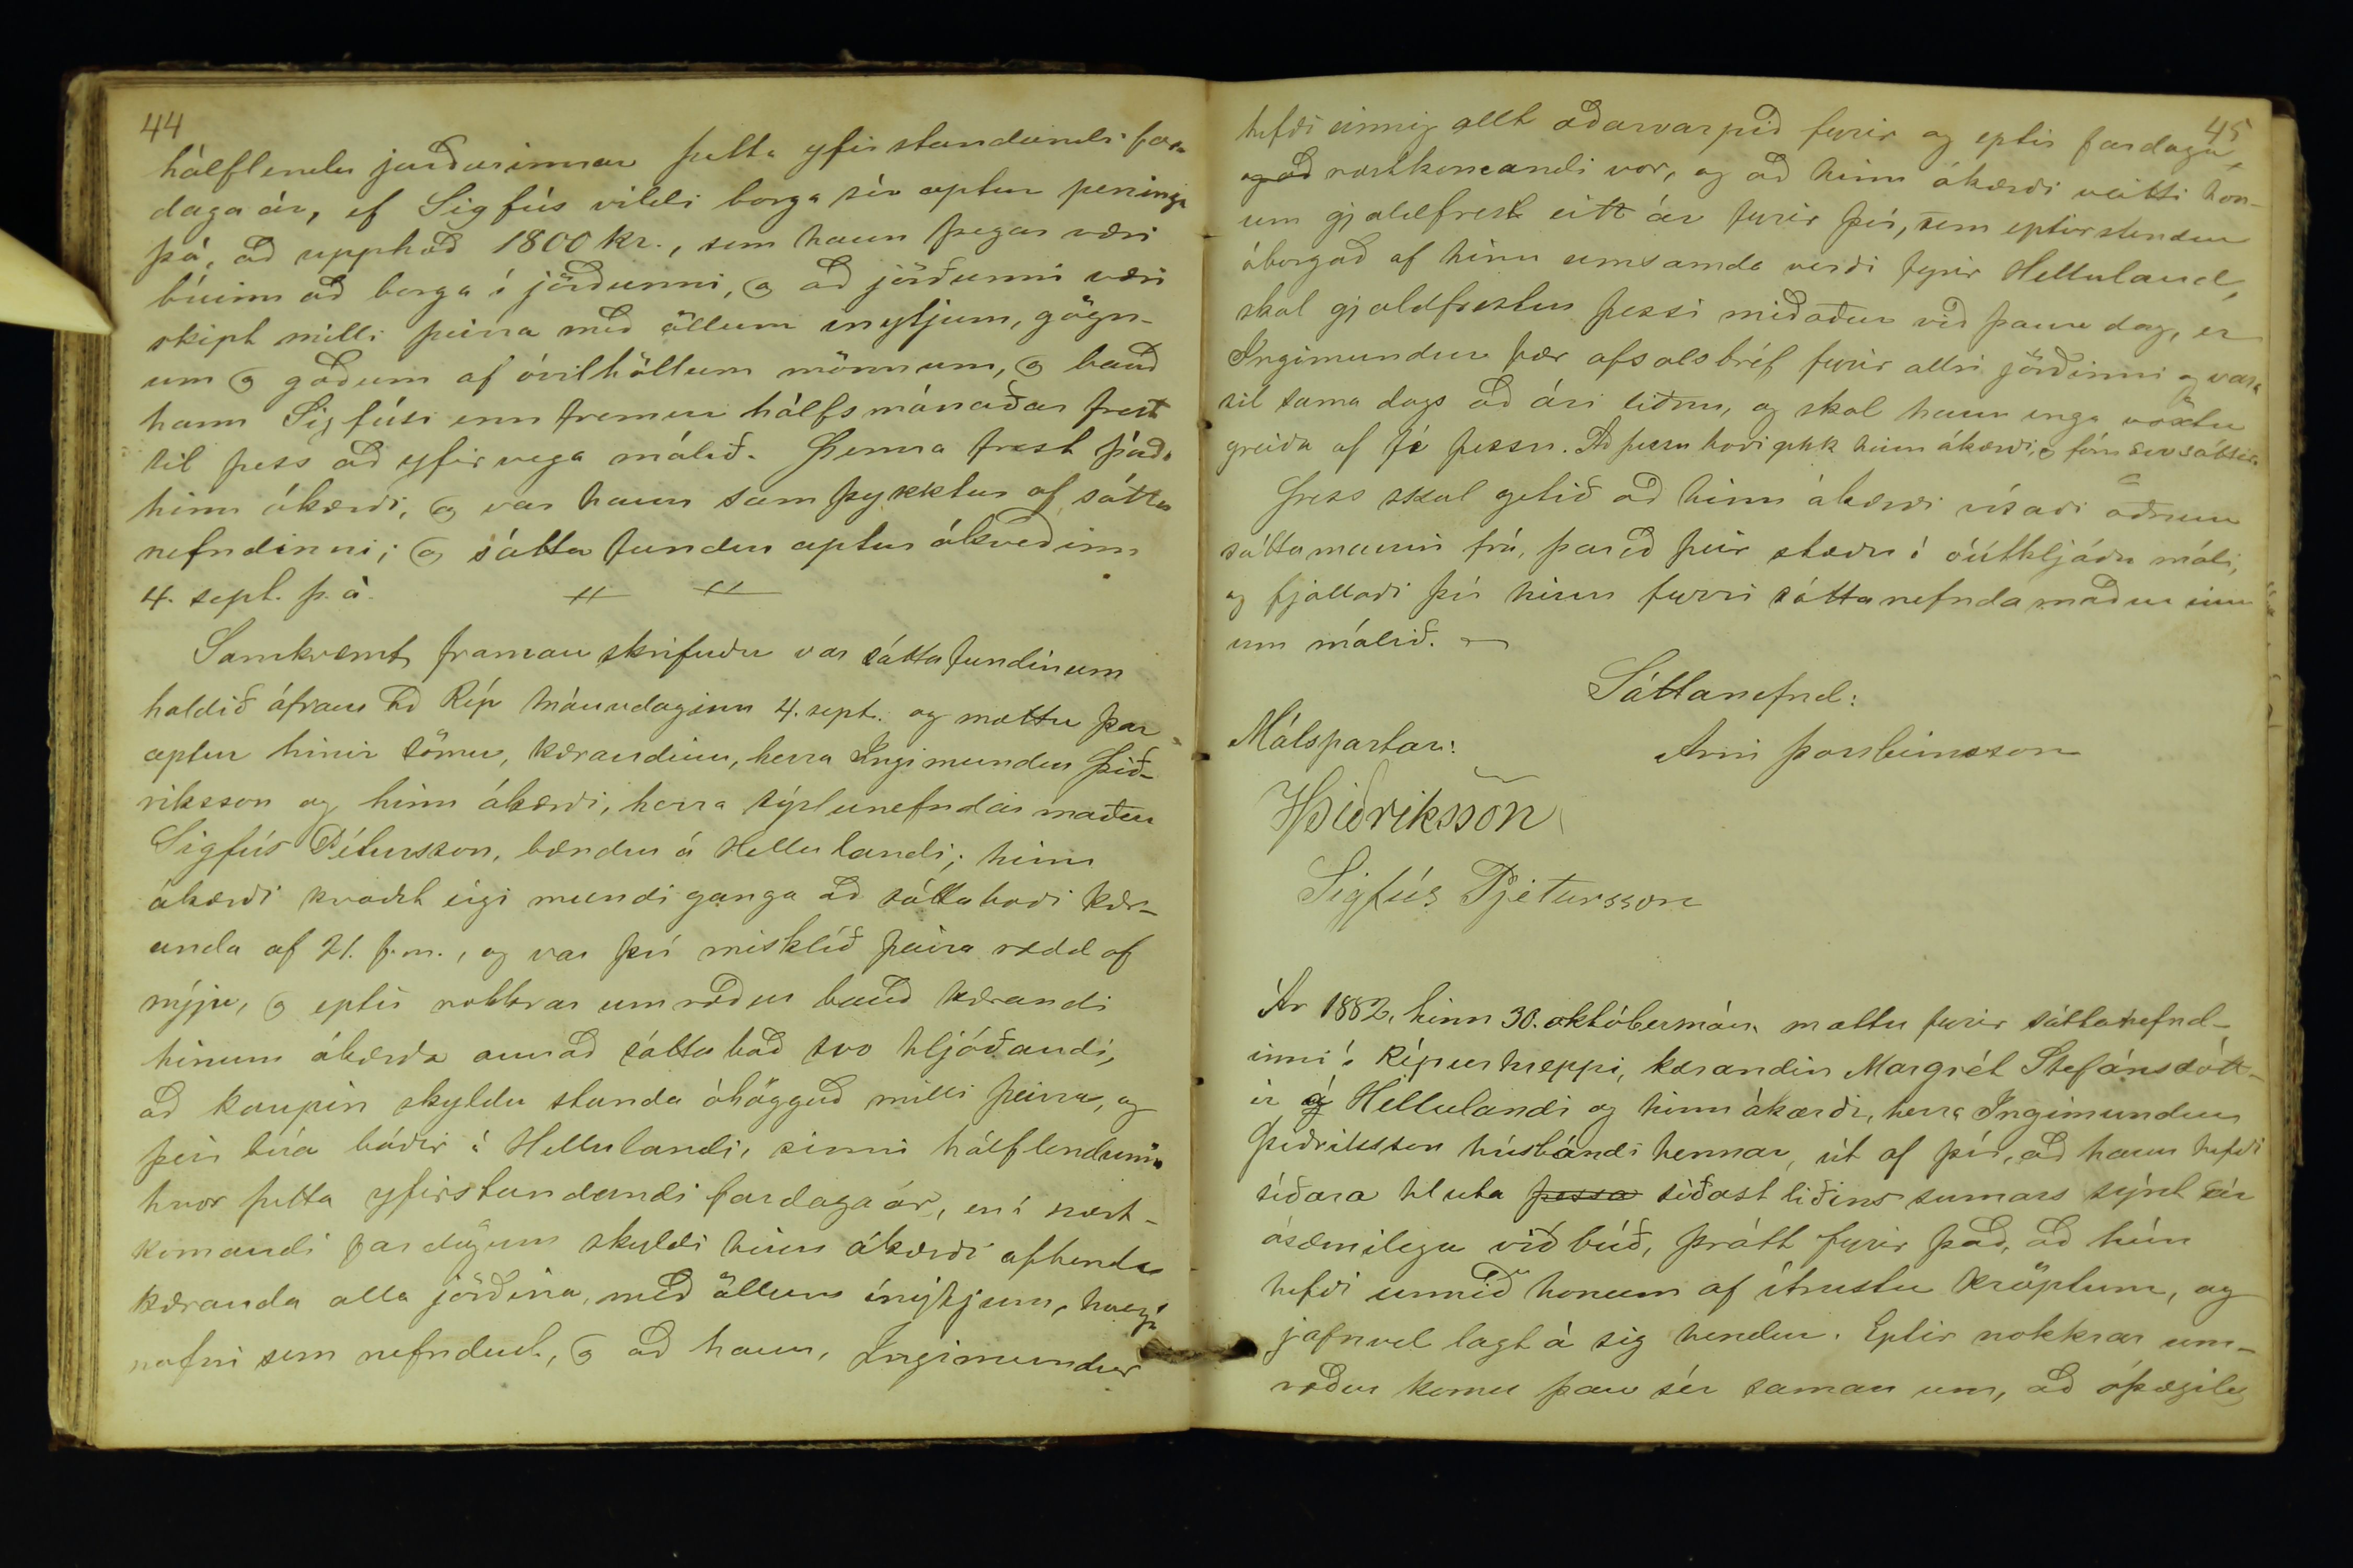 44
hálflendu jarðarinnar þetta yfirstandandi far-
daga ár, ef Sigfús vildi borga sér aptur peninga
þá, að upphæð 1800 kr., sem hann þegar væri
búinn að borga í jörðunni, og að jörðunni væri
skipt milli þeirra með öllum ínytjum, gögn-
um og gæðum af óvilhöllum mönnum, og bauð
hann Sigfúsi enn fremur hálfsmánaðar frest
til þess að yfirvega málið. Þenna frest þáði
hinn ákærði, og var hann samþykktur af sátta
nefndinni; og sáttafundur aptur ákveðinn
4. sept. þ.á.
Samkvæmt framanskrifuðu var sáttafundinum
haldið áfram að Ríp mánudaginn 4. sept. og mættu þar
aptur hinir sömu, kærandinn, herra Ingimundur Þið-
riksson og hinn ákærði, herra sýslunefndar maður
Sigfús Pétursson, bændur á Hellulandi; hinn
ákærði kvaðst eigi mundi ganga að sáttaboði kær-
anda af 21. f.m., og var því misklíð þeirra rædd af
nýju, og eptir nokkrar umræður bauð kærandi
hinum ákærða annað sáttaboð svo hljóðandi,
að kaupin skyldu standa óhögguð milli þeirra, og
þeir búa báðir á Hellulandi, sinni hálflendunni
hvor þetta yfirstandandi fardagaár, en í næst-
komandi fardögum skyldi hinn ákærði afhenda
kæranda alla jörðina, með öllum ínytjum, hverju
nafni sem nefndust, og að hann, Ingimundur
45
hefði einnig allt æðarvarpið fyrir og eptir fardaga,
og að næstkomandi vor, og að hinn ákærði veitti hon-
um gjaldfrest eitt ár fyrir því, sem eptirstendur
óborgað af hinu umsamda verði fyrir Helluland,
skal gjaldfrestur þessi miðaður við þann dag, er
Ingimundur fær afsalsbréf fyrir allri jörðinni og vara
til sama dags að ári liðnu, og skal hann enga vöxtu
greiða af fé þessu. Að þessu boði gekk hinn ákærði, og fóru svo sáttir.
Þess skal getið að hinn ákærði vísaði öðrum
sáttamanni frá, þareð þeir stæðu í óútkljáðu máli,
og fjallaði því hinn fyrri sáttanefndamaður einn
um málið.
Sáttanefnd:
Málspartar:
Árni Þorsteinsson
IÞiðriksson
Sigfús Pjetursson
Ár 1882, hinn 30. októbermán. mættu fyrir sáttanefnd-
inni í Rípurhreppi, kærandin Margrét Stefánsdótt-
ir á Hellulandi og hinn ákærði, herra Ingimundur
Þiðriksson húsbóndi hennar, út af því, að hann hefði
síðara hluta þessa síðast liðins sumars sýnt sér
ósæmilega viðbúð, þrátt fyrir það, að hún
hefði unnið honum af ítrustu kröptum, og
jafnvel lagt á sig hendur. Eptir nokkrar um-
ræður komu þau sér saman um, að óþægileg